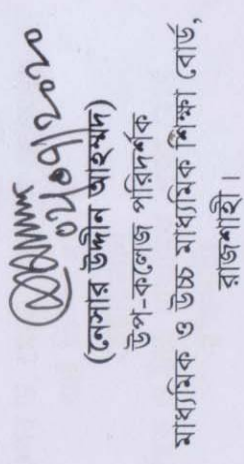 ০২/০৭/২০২০
(নেসার উদ্দীন আহম্মদ)
উপ-কলেজ পরিদর্শক
মাধ্যমিক ও উচ্চ মাধ্যমিক শিক্ষা বোর্ড,
রাজশাহী।